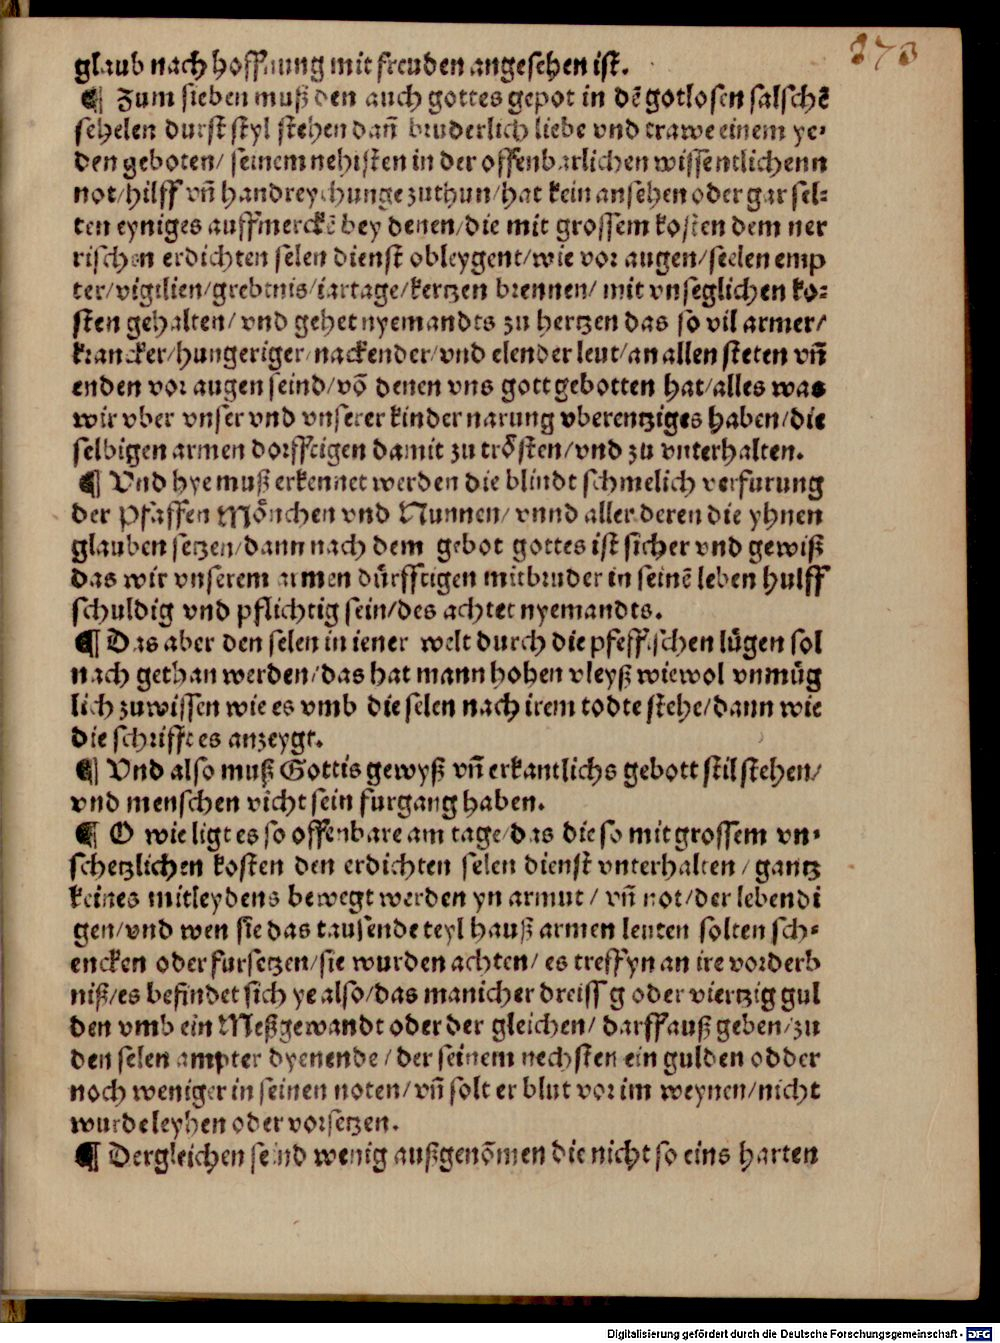 373
glaub nach hoffnung mit freuden angesehen ist.
¶ Zum sieben muß den auch gottes gepot in dē gotlosen falschē
sehelen durst styl stehen dañ bruderlich liebe vnd trawe einem ye-
den geboten/ seinem nehisten in der offenbarlichen wissentlichenn
not/hilff vñ handreychunge zuthun/hat kein ansehen oder gar sel-
ten eyniges auffmerckē bey denen/die mit grossem kosten dem ner
rischen erdichten selen dienst obleygent/wie vor augen/seelen emp
ter/vigilien/grebtnis/iartage/kertzen brennen/ mit vnseglichen ko-
sten gehalten/ vnd gehet nyemandts zu hertzen das so vil armer/
krancker/hungeriger/nackender/vnd elender leut/an allen steten vñ
enden vor augen seind/vō denen vns gott gebotten hat/alles was
wir vber vnser vnd vnserer kinder narung vberentziges haben/die
selbigen armen dorfftigen damit zu trösten/vnd zu vnterhalten.
¶ Vnd hye muß erkennet werden die blindt schmelich verfurung
der Pfaffen Mönchen vnd Nunnen/ vnnd aller deren die yhnen
glauben setzen/dann nach dem gebot gottes ist sicher vnd gewiß
das wir vnserem armen dürfftigen mitbruder in seinē leben hulff
schuldig vnd pflichtig sein/des achtet nyemandts.
¶ Das aber den selen in iener welt durch die pfeffischen lügen sol
nach gethan werden/das hat mann hohen vleyß wiewol vnmüg
lich zuwissen wie es vmb die selen nach irem todte stehe/dann wie
die schrifft es anzeygt.
¶ Vnd also muß Gottis gewyß vñ erkantlichs gebott stil stehen/
vnd menschen ticht sein furgang haben.
¶ O wie ligt es so offenbare am tage/das die so mit grossem vn-
schetzlichen kosten den erdichten selen dienst vnterhalten/ gantz
keines mitleydens bewegt werden yn armut/ vñ not/der lebendi
gen/vnd wen sie das tausende teyl hauß armen leuten solten sch-
encken oder fursetzen/sie wurden achten/ es treff yn an ire vorderb
niß/es befindet sich ye also/das manicher dreissig oder viertzig gul
den vmb ein Meßgewandt oder der gleichen/ darff auß geben/zu
den selen ampter dyenende/der seinem nechsten ein gulden odder
noch weniger in seinen noten/vñ solt er blut vor im weynen/nicht
wurde leyhen oder vorsetzen.
¶ Dergleichen seind wenig außgenōmen die nicht so eins harten
Digitalisierung gefördert durch die Deutsche Forschungsgemeinschaft - DFG